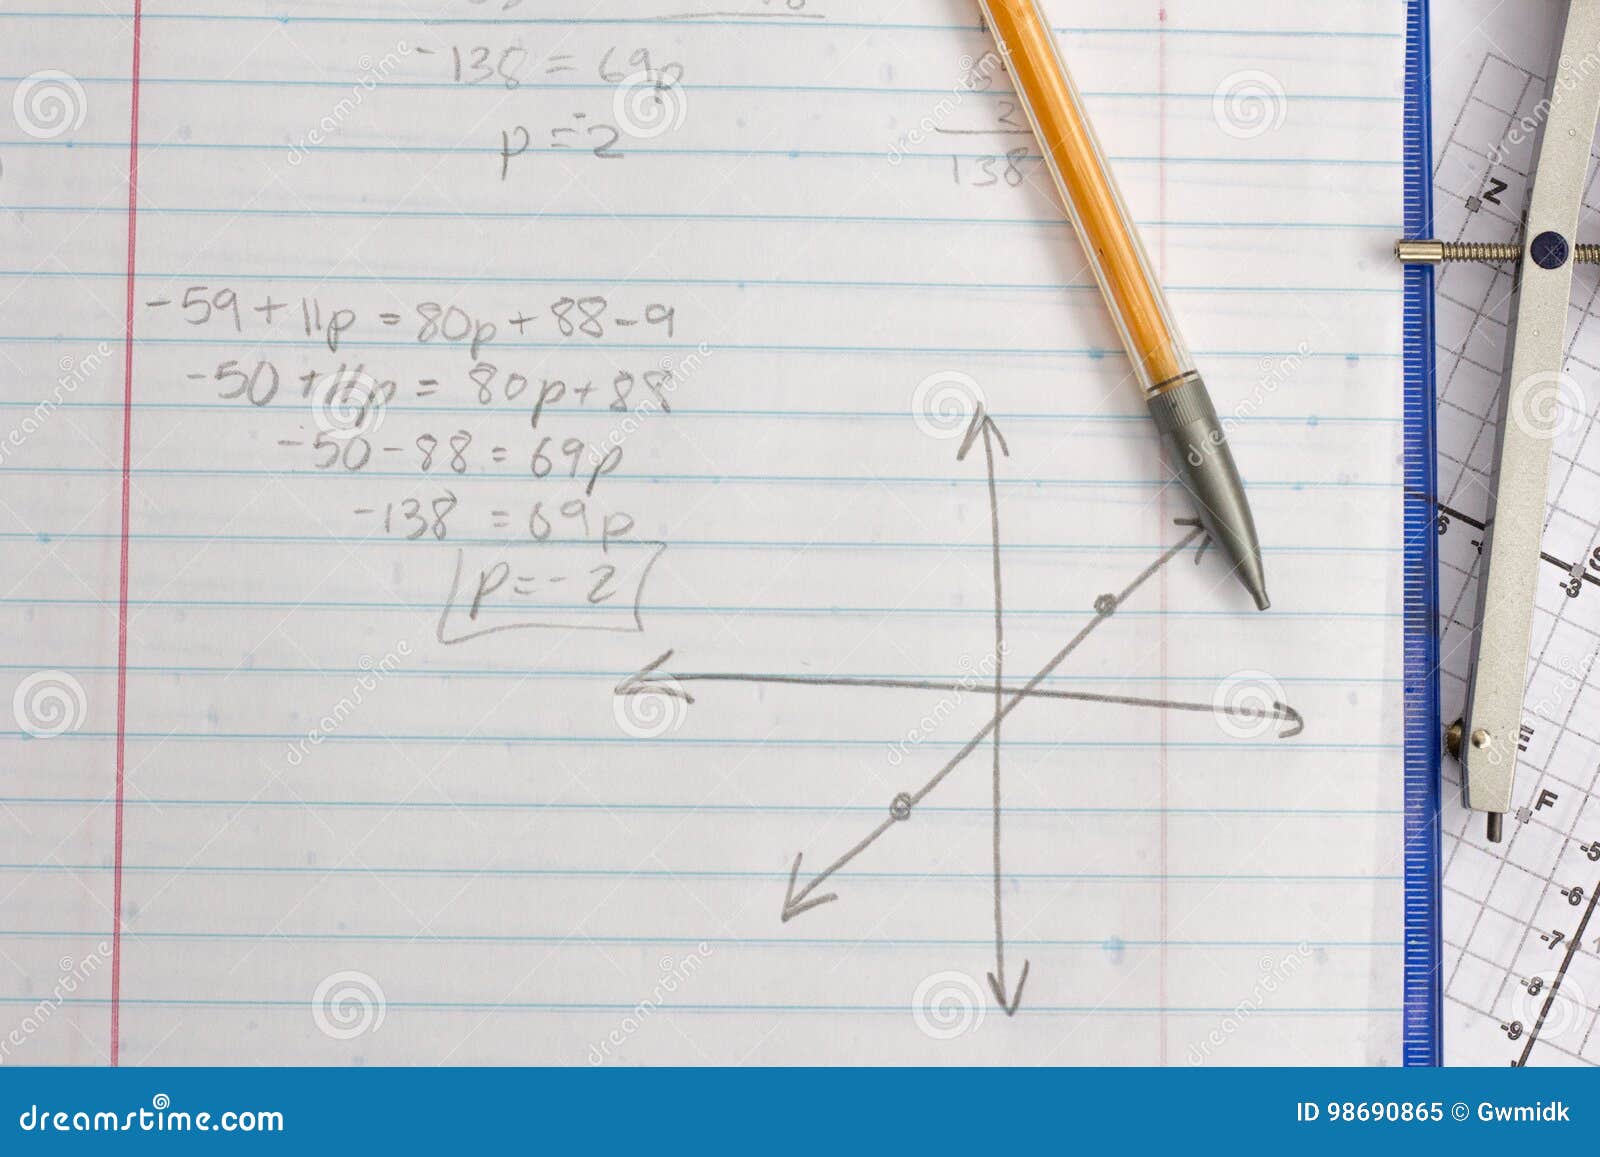 -138 = 69p
p = -2
2
138
-59 + 11p = 80p + 88 - 9
-50 + 11p = 80p + 88
-50 - 88 = 69p
-138 = 69p
p = - 2
N
-3
E
F
-5
-6
-7
-8
-9
dreamstime.com
ID 98690865 © Gwmidk